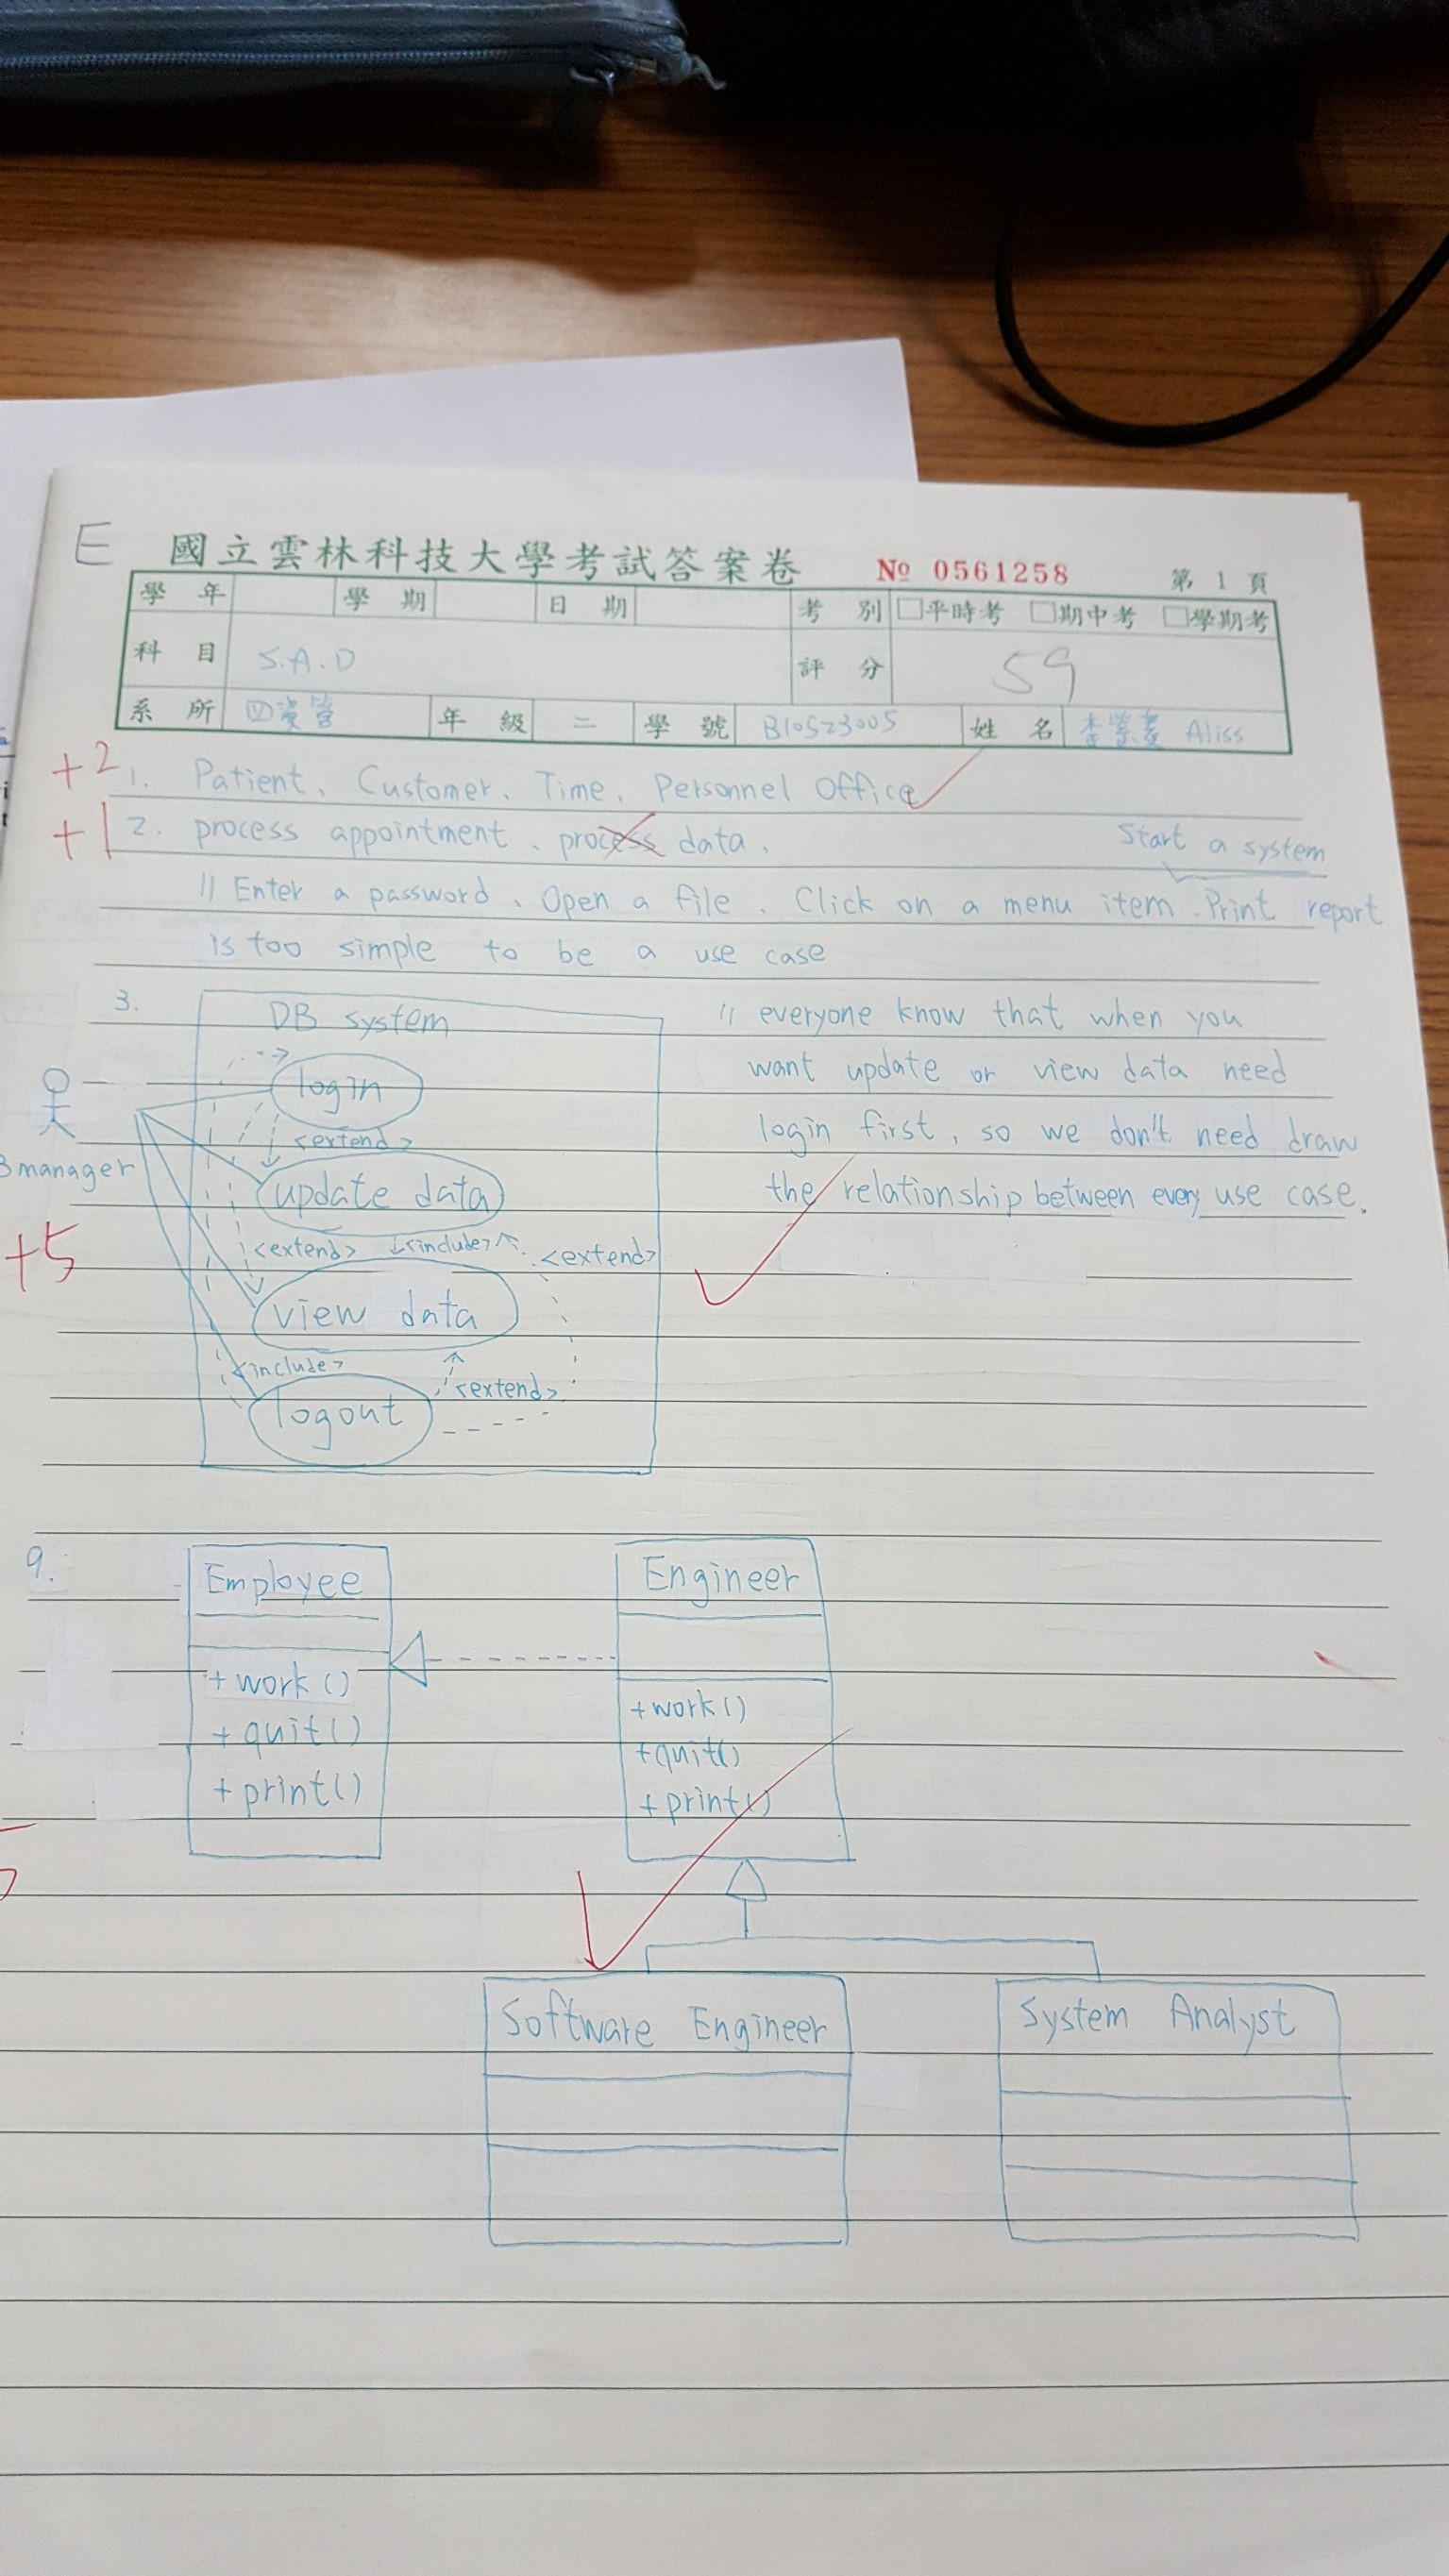 E
國立雲林科技大學考試答案卷 № 0561258 第 1 頁
學 年 學 期 日 期 考 別 □平時考 □期中考 □學期考
科 目 S.A.D 評 分 59
系 所 四資管 年 級 二 學 號 B10523005 姓 名 Aliss
+2 1. Patient、Customer、Time、Personnel Office
+1 2. process appointment、process data、
Start a system
// Enter a password、Open a file、Click on a menu item、Print report
is too simple to be a use case
3.
DB system
login
<extend>
update data
<extend> <include> <extend>
view data
<include>
<extend>
logout
manager
+5
// everyone know that when you
want update or view data need
login first, so we don't need draw
the relationship between every use case.
9.
Employee
+ work ()
+ quit()
+ print()
Engineer
+work()
+quit()
+print()
Software Engineer
System Analyst